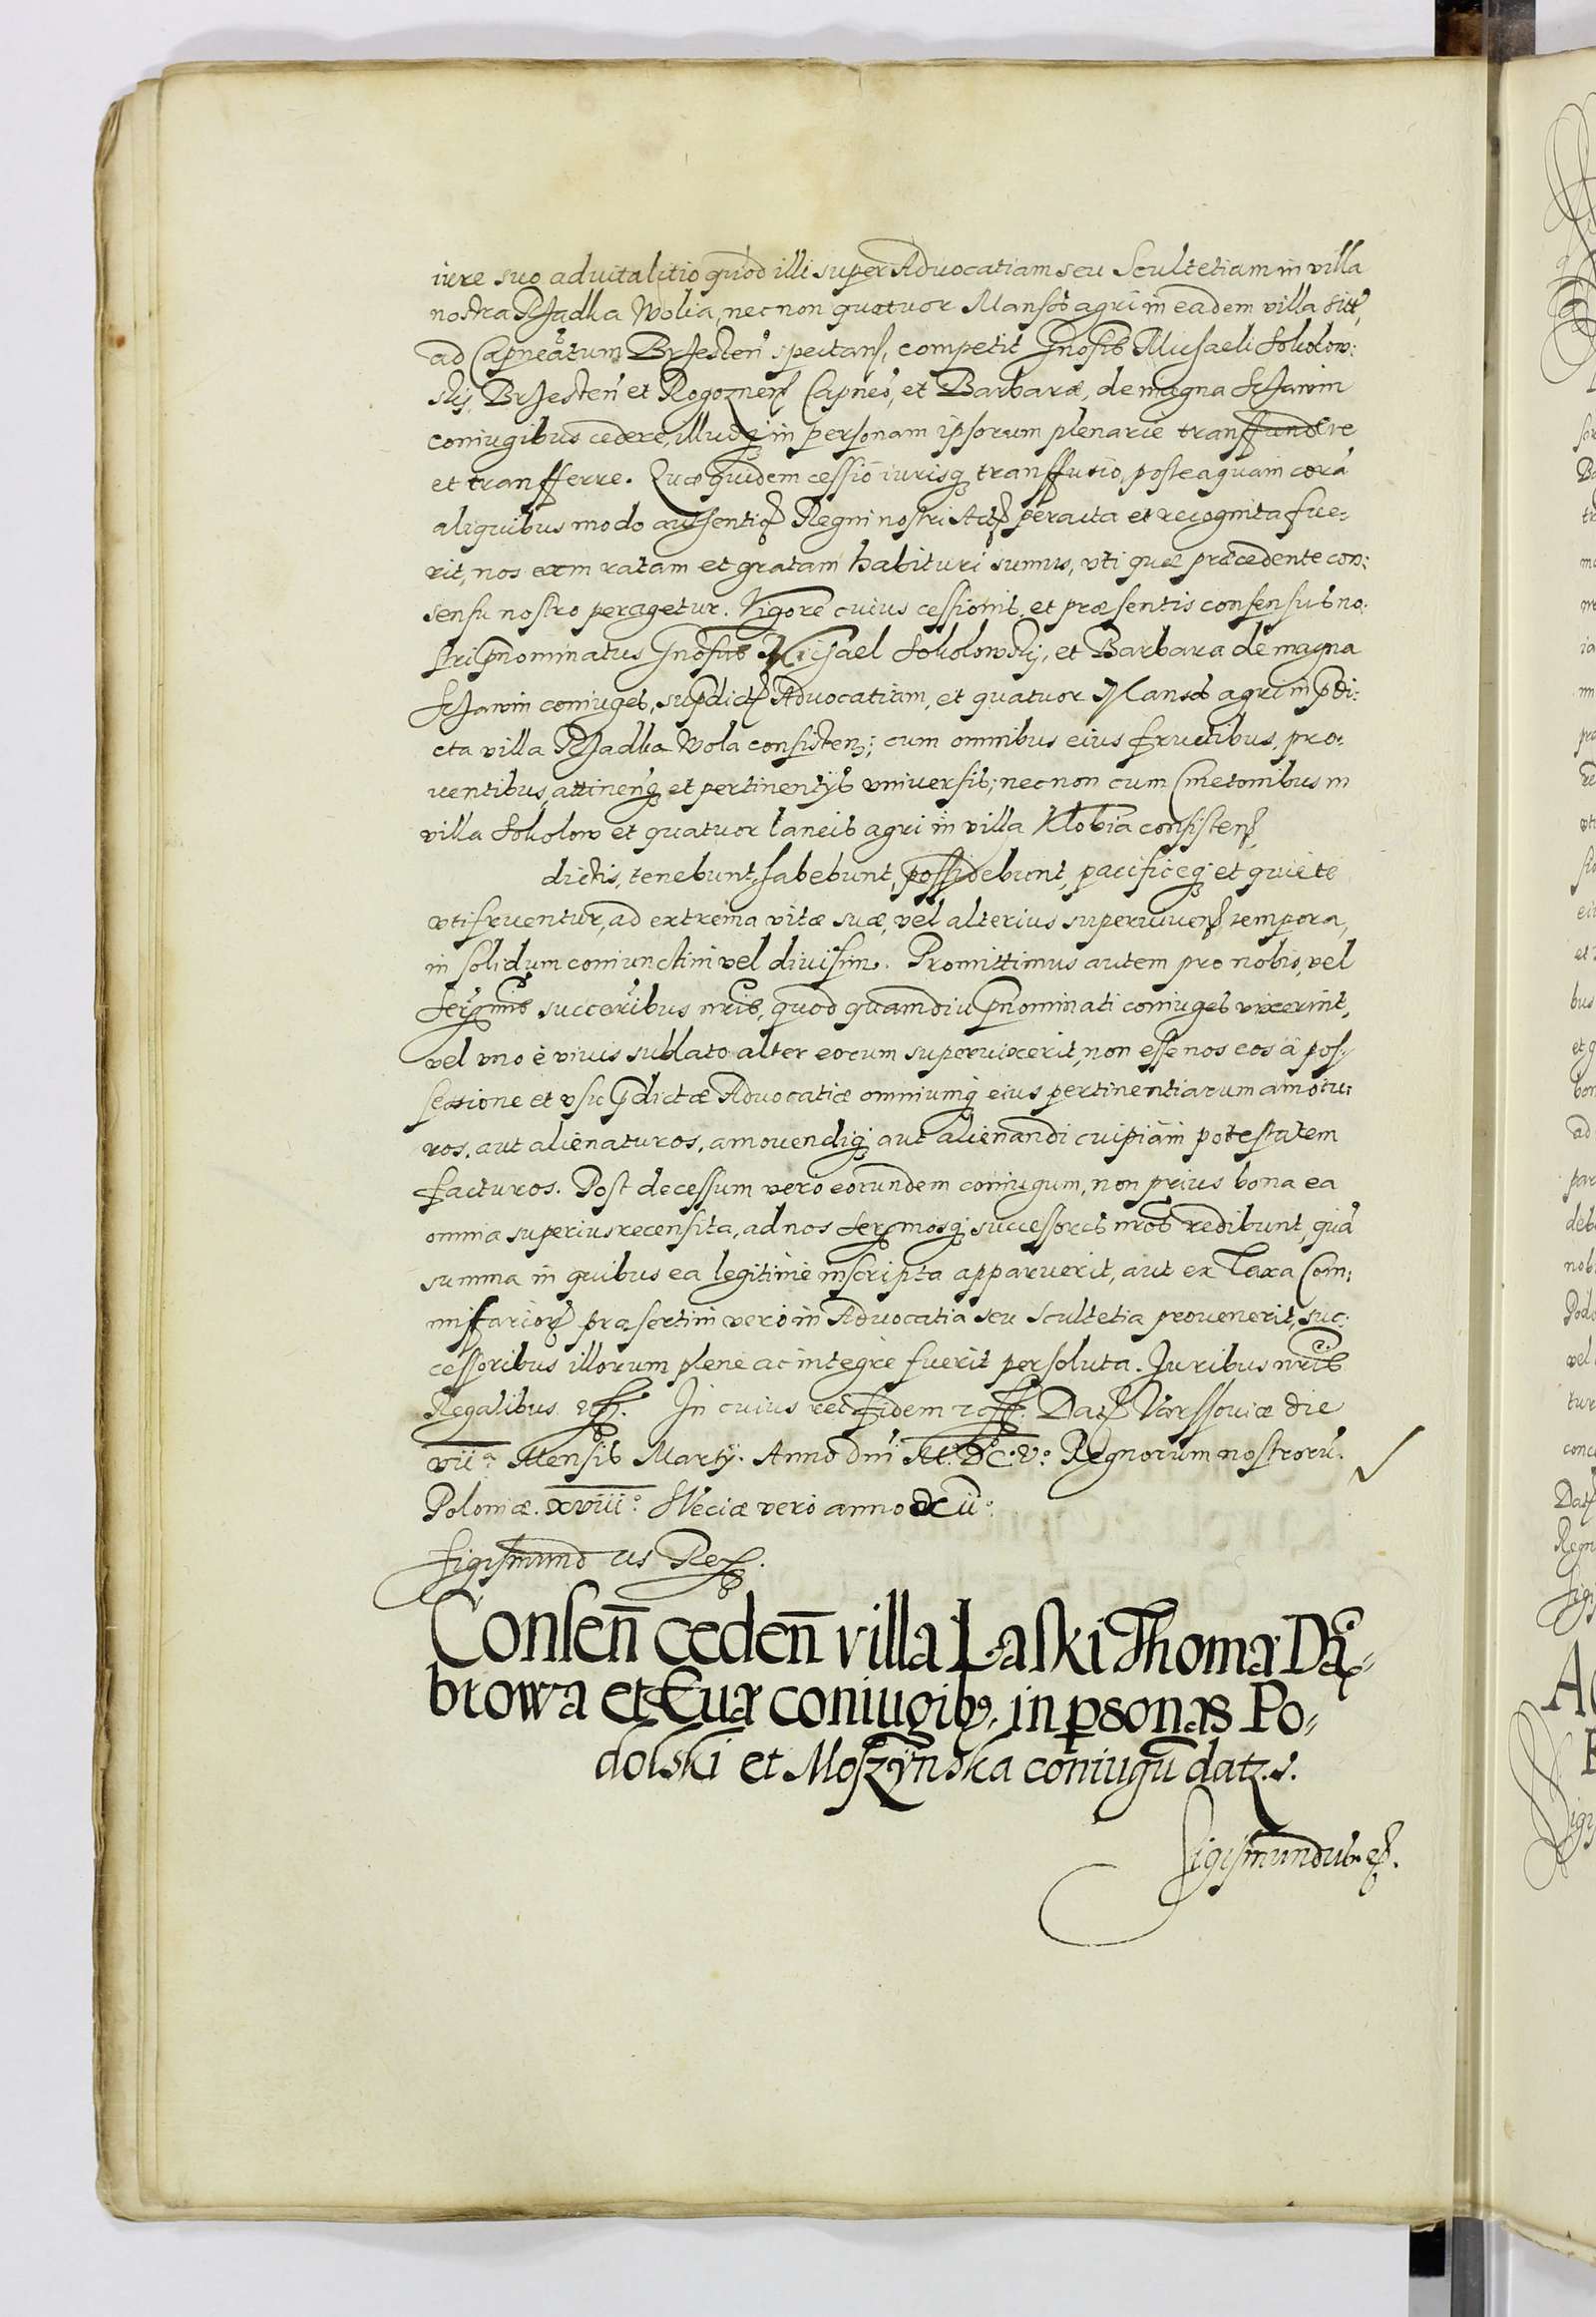 iure suo aduitalitio quod illi super Aduocatiam seu Scultetiam in villa
nostra Rzadka Wolia, necnon quatuor Mansos agri in eadem villa sitt,
ad Capneatum Brzesten spectan, competit Gnosis Michaeli Sokolow:
skij, Brzesten et Rogoznen Capneo, et Barbaræ, de magna Sczawin
coniugibus cedere, illudq in personam ipsorum plenarie transfundere
et transferre. Quæ quidem cessio iurisq transfusio, posteaquam corã
aliquibus modo authentic Regni nostri Act peracta et recognita fue:
rit, nos eam ratam et gratam habituri sumus, vti quæ præcedente con:
sensu nostro peragetur. Vigore cuius cessionis, et præsentis consensus no:
stri pnominatus Gnosus Michael Sokolowskij, et Barbara de magna
Sczawin coniuges, supdict Aduocatiam, et quatuor Mansos agri in pdi:
cta villa Rzadka Wola consisten; cum omnibus eius fructibus, pro:
uentibus, attinenq et pertinentijs vniuersis; necnon cum Cmetonibus in
villa Sokolow et quatuor laneis agri in villa Klobia consisten
dictis, tenebunt, habebunt, possidebunt, pacificeq et quiete
vtifruentur, ad extrema vitæ suæ, vel alterius superuiuen tempora,
in solidum coniunctim vel diuisim. Promittimus autem pro nobis, vel
Serenmis succeribus nris, quod quamdiu pnominati coniuges vixerint,
vel vno è viuis sublato alter eorum superuixerit, non esse nos eos à pos:
sessione et vsu pdictæ Aduocatiæ omniumq eius pertinentiarum amotu:
ros, aut alienaturos, amouendiq aut alienandi cuipiam potestatem
facturos. Post decessum vero eorundem coniugum, non prius bona ea
omnia superius recensita, ad nos Sermosq successores nros redibunt, quã
summa in quibus ea legitime inscripta apparuerit, aut ex Taxa Com:
missarior præsertim vero in Aduocatia seu Scultetia prouenerit, suc:
cessoribus illorum plene ac integre fuerit persoluta. Iuribus nris
Regalibus In cuius rei fidem Dat Varssouiæ die
vii.ᵃ Mensis Martij. Anno dni M.DC.V.° Regnorum nostrorũ.
Poloniæ. xviii.° Sueciæ vero anno xii.°
Sigismundus Rex.
Consen̄ ceden̄ villa Łaski Thomæ Dą-
browa et Euæ coniugib9. in psonas Po-
dolski et Moszÿnska coniugũ datz. s.
Sigismundus